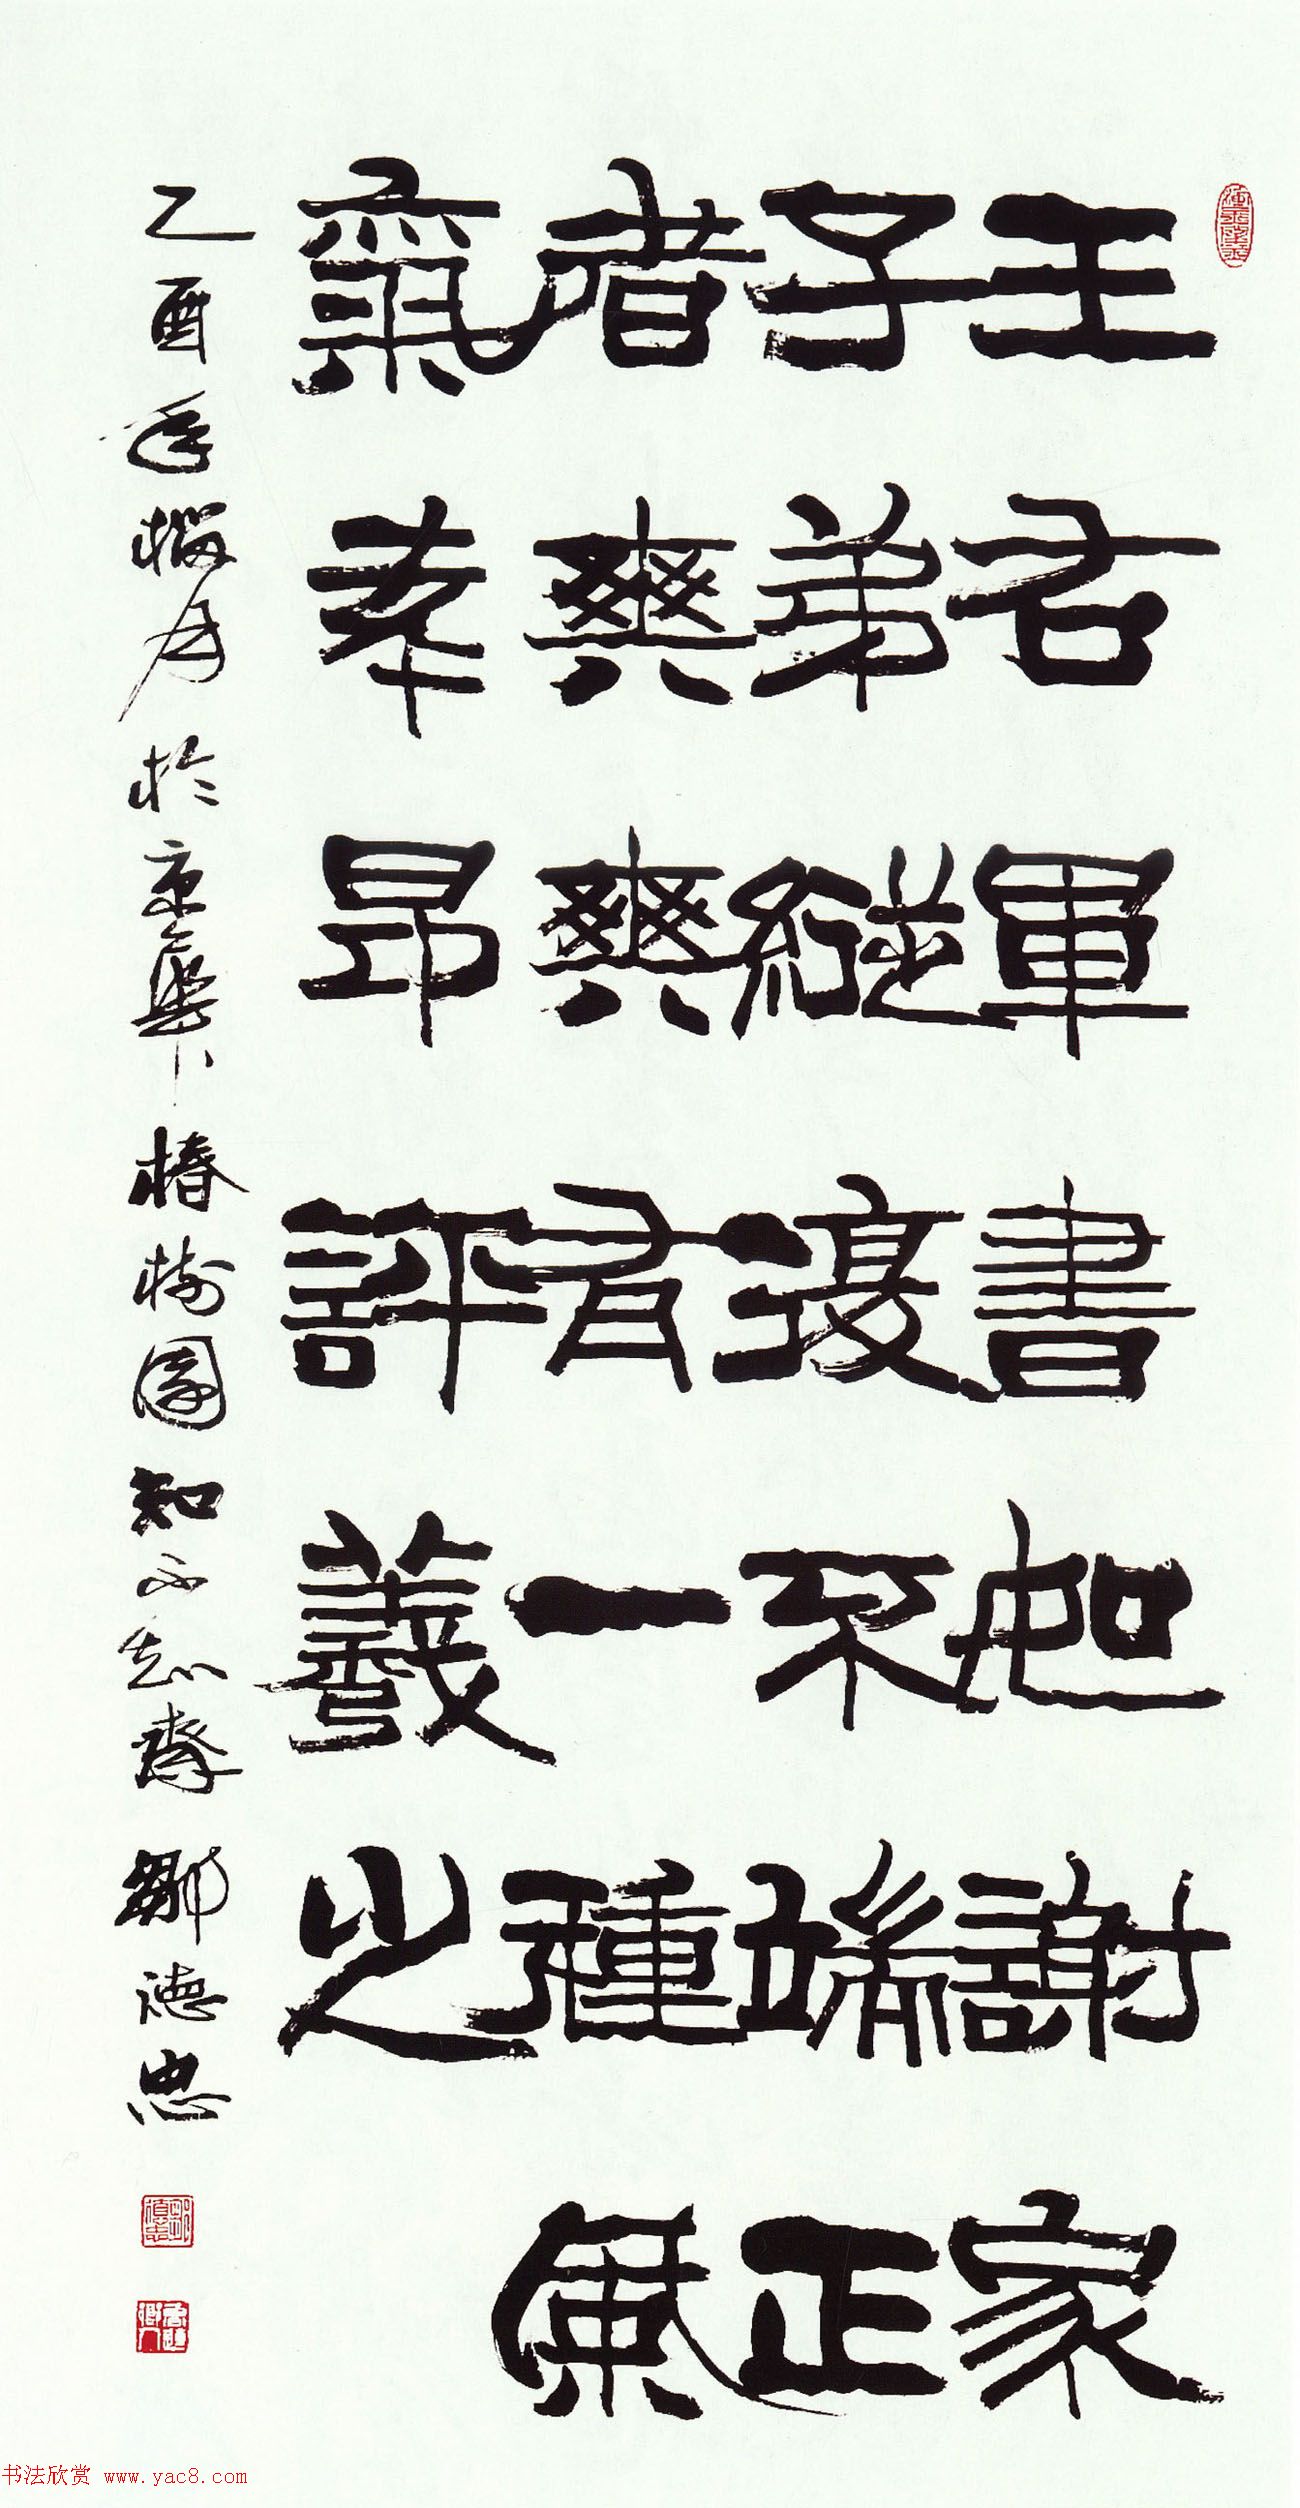 王右軍書如謝家
子弟縱復不端正
者爽爽有一種風
氣袁昂評羲之
乙酉年梅月於京華椿樹園知不知齋鄒德忠
书法欣赏 www.yac8.com